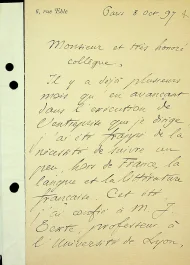 8, rue Bblé Paris 3 Oct. 97
Monsieur et très honoré
collègue,
Il y a déjà plusieurs
mois qu'en avançant
dans l'exécution de
l'entreprise que je dirige
j'ai été frappé de la
nécessité de suivre un
peu hors de France, la
langue et la littérature
française. Cet été
j'ai confié à M. J.
Texte, professeur à
l'Université de Lyon,